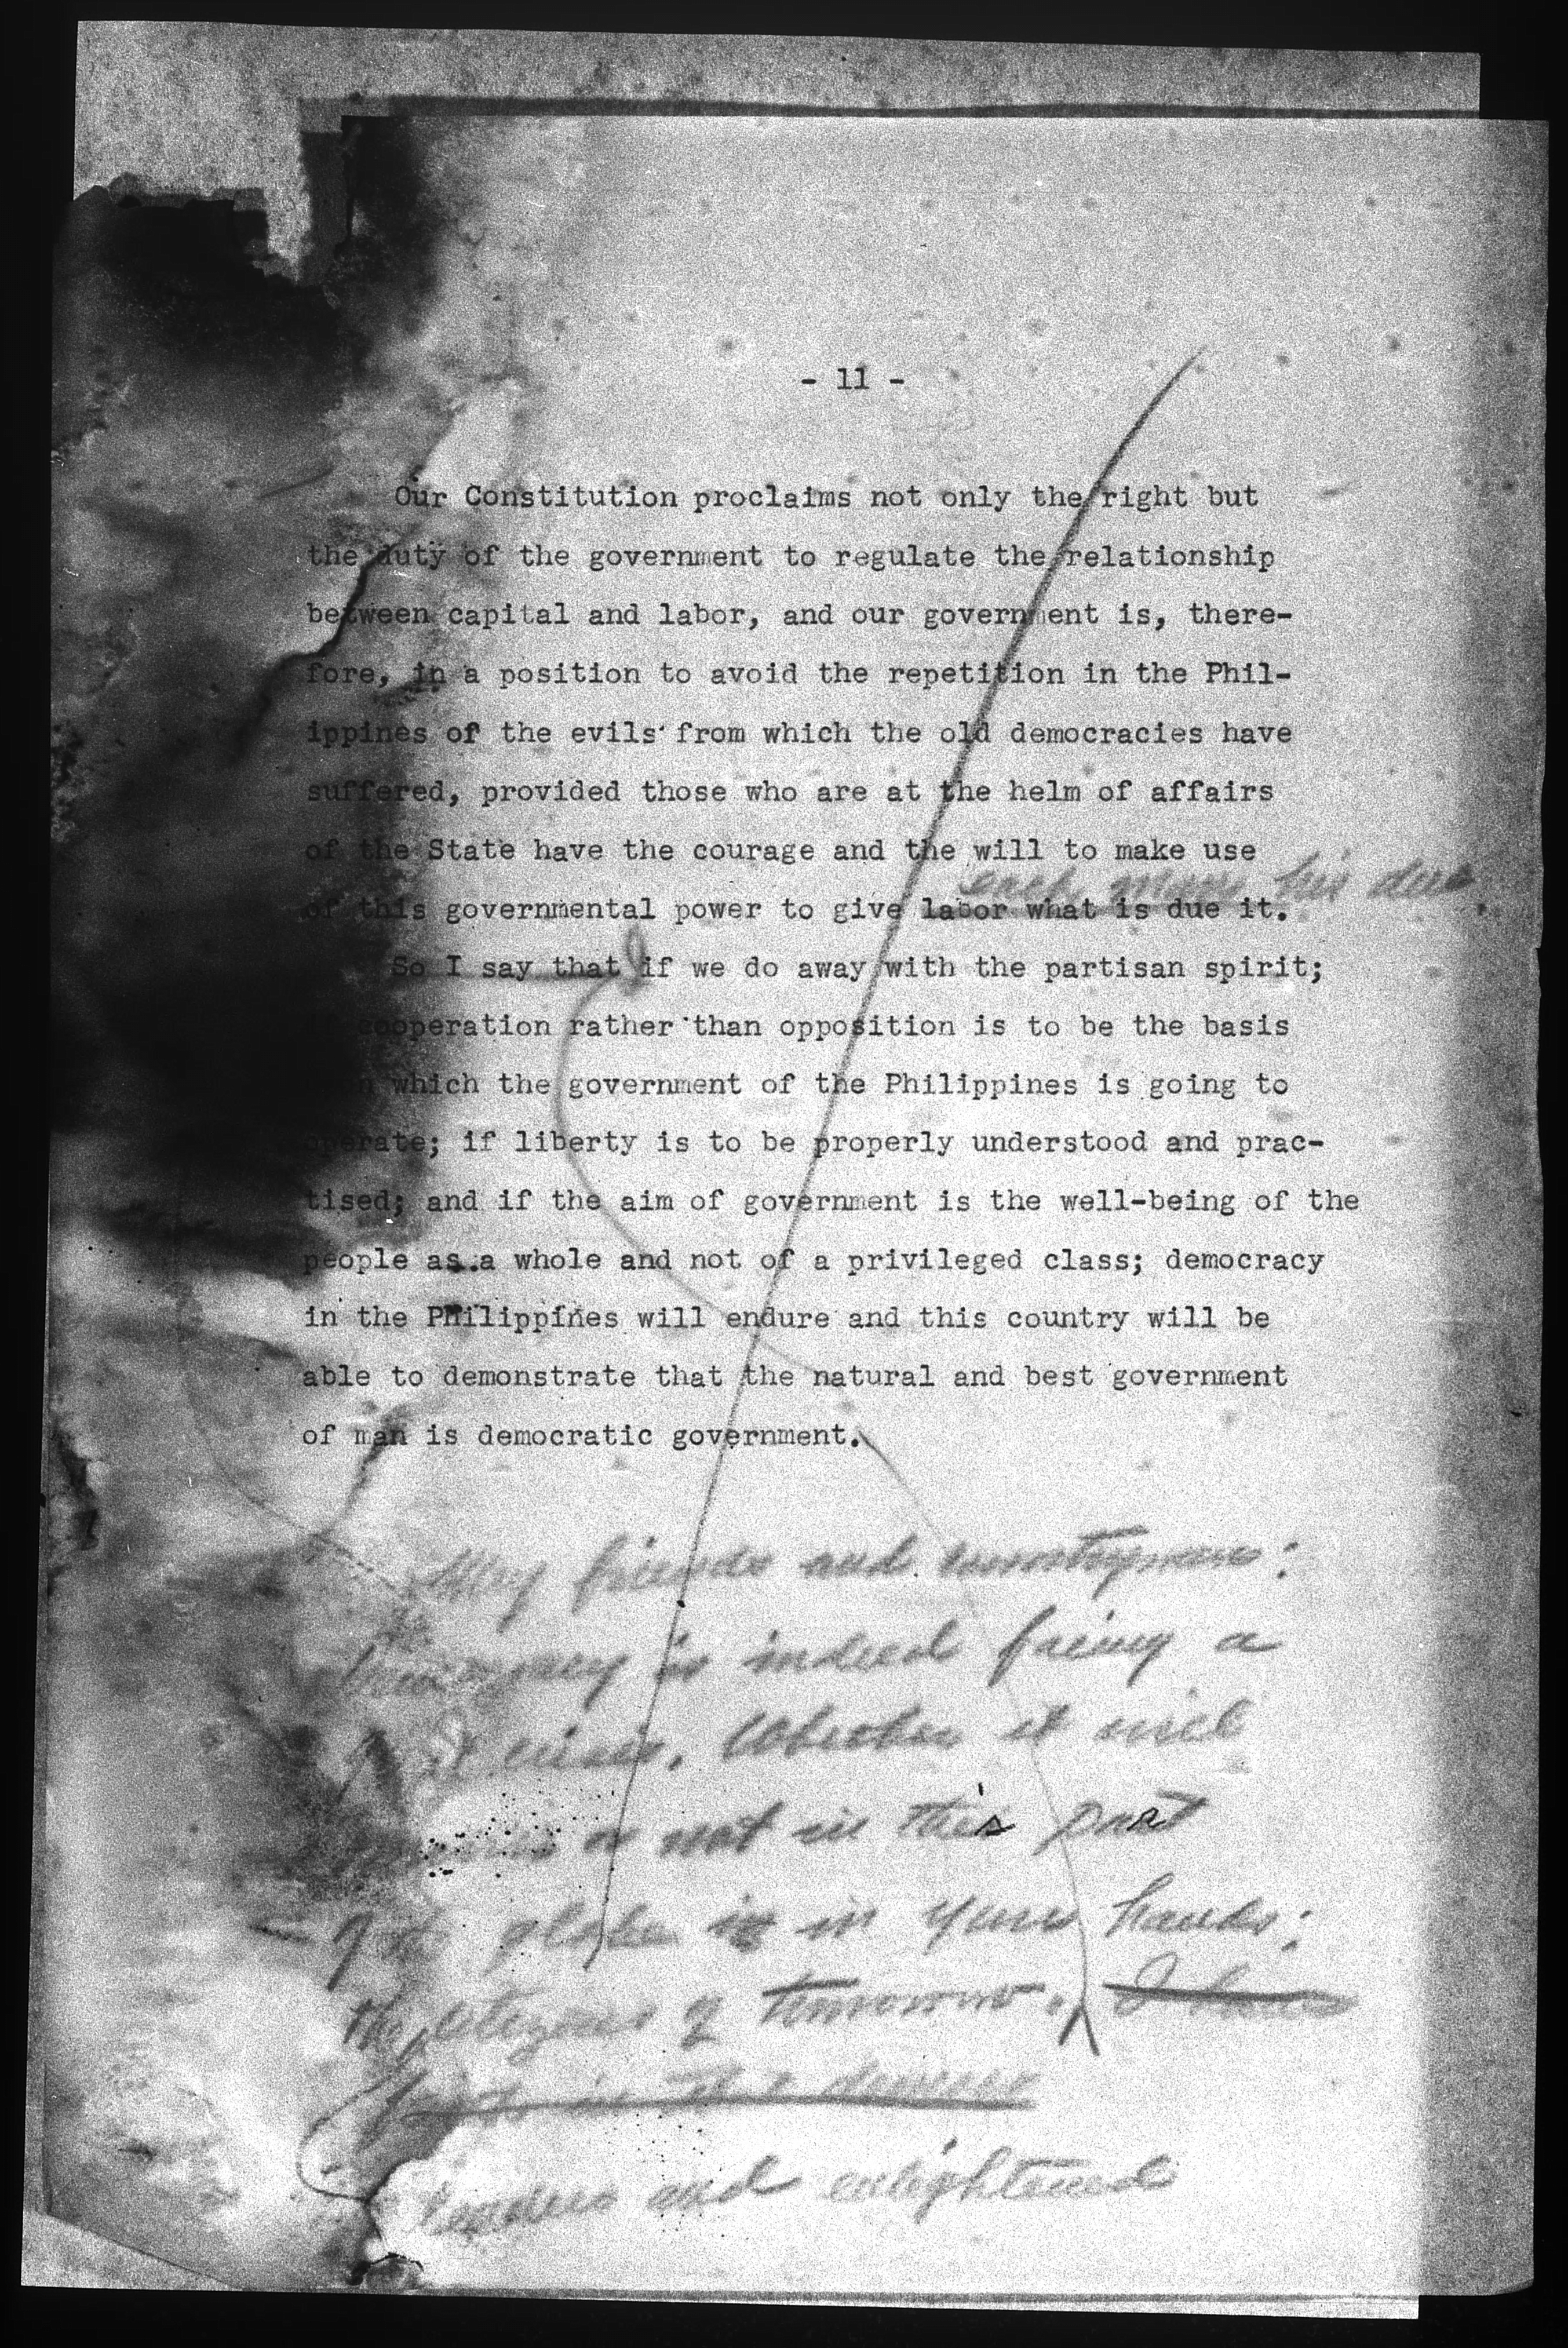 - 11 -
Our Constitution proclaims not only the right but
the duty of the government to regulate the relationship
between capital and labor, and our government is, there-
fore, in a position to avoid the repetition in the Phil-
ippines of the evils from which the old democracies have
suffered, provided those who are at the helm of affairs
of the State have the courage and the will to make use
each man his due
of this governmental power to give labor what is due it.
So I say that if we do away with the partisan spirit;
if cooperation rather than opposition is to be the basis
which the government of the Philippines is going to
operate; if liberty is to be properly understood and prac-
tised; and if the aim of government is the well-being of the
people as a whole and not of a privileged class; democracy
in the Philippines will endure and this country will be
able to demonstrate that the natural and best government
of man is democratic government.
My friends and countrymen:
is indeed facing a
crisis. Whether it will
or not in this part
globe is in your hands:
citizens of tomorrow.
leaders and enlightened